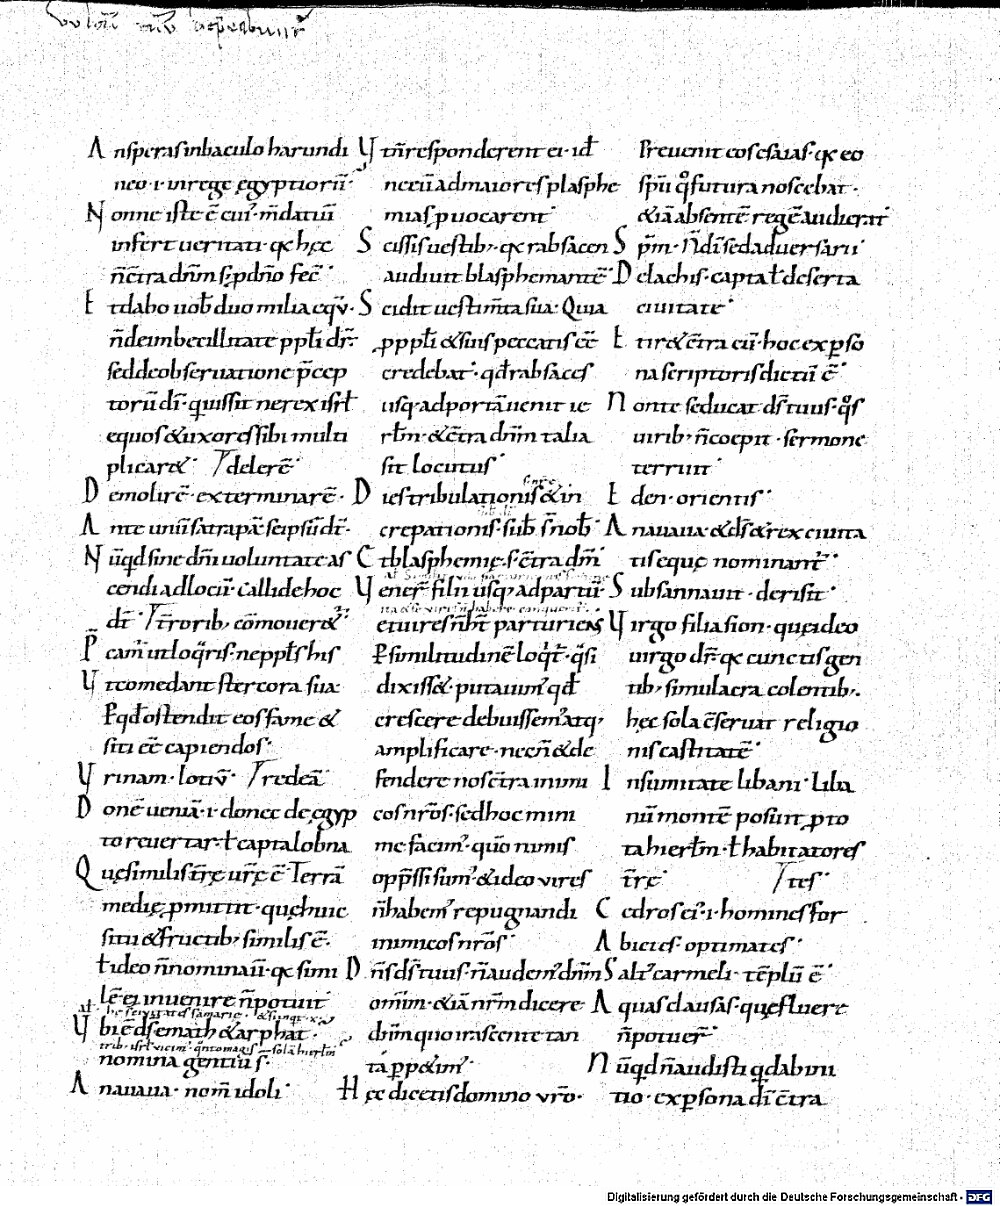 An speras in baculo harundi
neo .i. in rege ęgyptiorū
Nonne iste ē cui' m̄datiuū
infert ueritati qꝛ hęc
n̄ c̄tra dn̄m s; p dn̄o fec̄
Et dabo uob̄ duo milia eqū
n̄ de imbecillitate ppl̄i dr̄
sed de obseruatione p̄cep
torū dī quissit ne rex isrl̄
equos & uxores sibi multi
plicar& delerē
Demolirē exterminarē
Ante unū satrapā seipsū dr̄
Nūqd sine dn̄i uoluntate as
cendi ad locū callide hoc
dt̄ t̄rorib; cōmouer&
ut loq̄ris ne ppl̄s his
Vt comedant stercora sua
P qd̄ ostendit eos fame &
siti eē capiendos
Vrinam lotiū redeā
Donē ueniā .i. donec de ęgyp
to reuertar l̄ capta lobna
Quę similis t̄rę ur̄ę ē Terrā
medię pmittit quę huic
situ & fructib; similis ē
l̄ ideo n̄ nominauī qꝛ simi
lē ei inuenire n̄ potuit
Vbi ē ds̄ emath & arphat
nomina gentiū s̄
Anauaua nom̄ idoli
Vt n̄ responderent ei id̄
ne eū ad maiores plasphe
mias puocarent
Scissis uestib; qꝛ rabsacen
audiuit blasphemantē
Scidit uestim̄ta sua Quia
p ppl̄i & sui s peccatis eē
credebat qd̄ rabsaces
usq; ad portā uenit ie
rl̄m & c̄tra dn̄m talia
sit locutus
Dies tribulationis & in
crepationis sub s̄ nob̄
Et blasphemię s̄ c̄tra dn̄i
Vener̄ filii usq; ad partū
et uires n̄ h̄t parturiens
P similitudinē loq̄t q̄si
dixiss& putauim' qd̄
crescere debuissem' atq;
amplificare necn̄ & de
fendere nos c̄tra inimi
cos nr̄os sed hoc mini
me facim' quō nimis
opp̄ssi sum' & ideo uires
n̄ habem' repugnandi
inimicos nr̄os
Dn̄s ds̄ tuus n̄ audem' dn̄m
om̄m & iā nr̄m dicere
dn̄m quo irascente tan
ta pp&im'
Hęc dicetis domino vr̄o
Preuenit eos esaias qꝛ eo
sp̄u q̄ futura noscebat
& iā absentē regē audierat
Sp̄m n̄ dī sed aduersarii
De lachis capta l̄ deserta
ciuitate
Et ir& c̄tra eū hoc ex pso
na scriptoris dictū ē
Non te seducat ds̄ tuus q̄s
uirib; n̄ coepit sermone
terruit
Eden orientis
Anauaua & ds̄ & rex ciuita
tis equę nominant̄
Subsannauit derisit
Virgo filia sion quę ideo
uirgo dr̄ qꝛ cunctis gen
tib; simulacra colentib;
hęc sola c̄seruat religio
nis castitatē
In sumitate libani liba
nū montē posuit pto
ta hierl̄m l̄ habitatores
t̄rę tes
Cedros ei' .i. homines for
Abies optimates
Salt' carmeli tēplū ē
Aquas clausas quę fluere
n̄ potuer̄
Nūqd n̄ audisti q dabitu
tio ex psona dī c̄tra
Digitalisierung gefördert durch die Deutsche Forschungsgemeinschaft - DFG